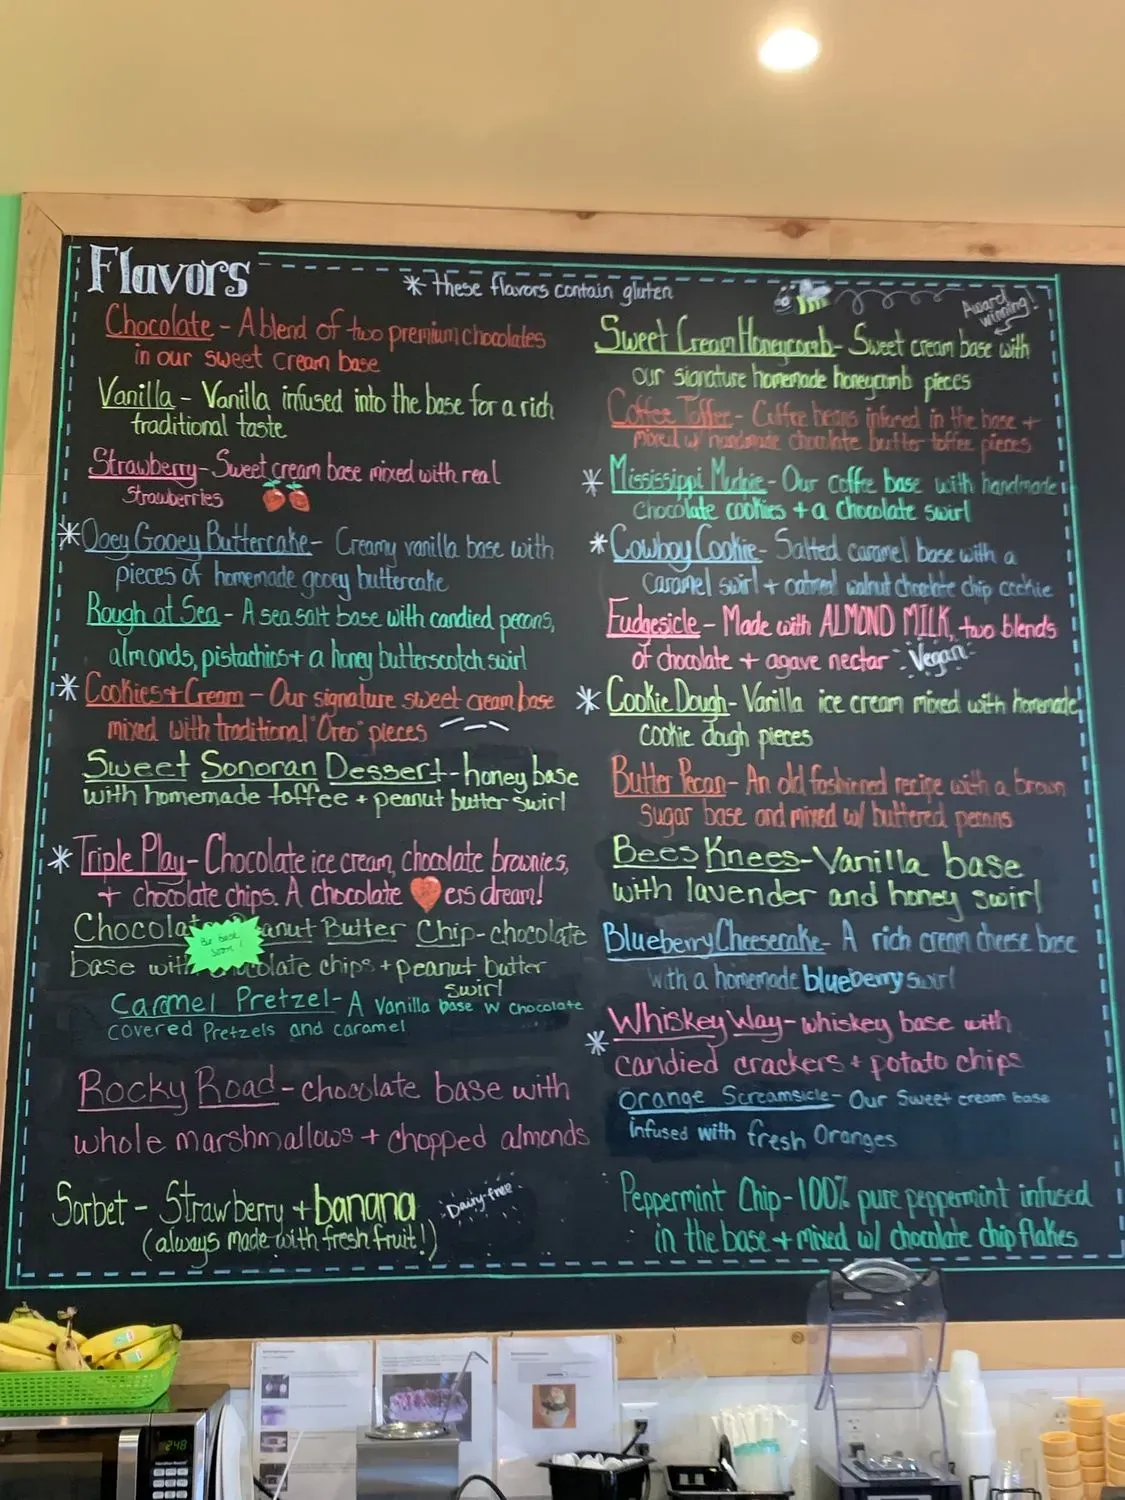 Flavors
* these flavors contain gluten
Chocolate - A blend of two premium chocolates
in our sweet cream base
Vanilla - Vanilla infused into the base for a rich
traditional taste
Strawberry - Sweet cream base mixed with real
Strawberries
* Ooey Gooey Buttercake - Creamy vanilla base with
pieces of homemade gooey buttercake
Rough at Sea - A sea salt base with candied pecans,
almonds, pistachios + a honey butterscotch swirl
* Cookies + Cream - Our signature sweet cream base
mixed with traditional "Oreo" pieces
Sweet Sonoran Dessert - honey base
with homemade toffee + peanut butter swirl
* Triple Play - Chocolate ice cream, chocolate brownies,
+ chocolate chips. A chocolate ers dream!
Chocolat anut Butter Chip - chocolate
base with olate chips + peanut butter
swirl
Be back soon!
Caramel Pretzel - A Vanilla base w chocolate
covered Pretzels and caramel
Rocky Road - chocolate base with
whole marshmallows + chopped almonds
Sorbet - Strawberry + banana
Dairy-free
(always made with fresh fruit!)
Award winning!
Sweet Cream Honeycomb - Sweet cream base with
our signature homemade honeycomb pieces
Coffee Toffee - Coffee beans infused in the base +
mixed w/ handmade chocolate butter toffee pieces
* Mississippi Mudpie - Our coffee base with handmade
chocolate cookies + a chocolate swirl
* Cowboy Cookie - Salted caramel base with a
caramel swirl + oatmeal walnut chocolate chip cookie
Fudgesicle - Made with ALMOND MILK, two blends
of chocolate + agave nectar
Vegan
* Cookie Dough - Vanilla ice cream mixed with homemade
cookie dough pieces
Butter Pecan - An old fashioned recipe with a brown
sugar base and mixed w/ buttered pecans
Bees Knees - Vanilla base
with lavender and honey swirl
Blueberry Cheesecake - A rich cream cheese base
with a homemade blueberry swirl
* Whiskey Way - whiskey base with
candied crackers + potato chips
Orange Screamsicle - Our Sweet cream base
infused with fresh Oranges
Peppermint Chip - 100% pure peppermint infused
in the base + mixed w/ chocolate chip flakes
2:48